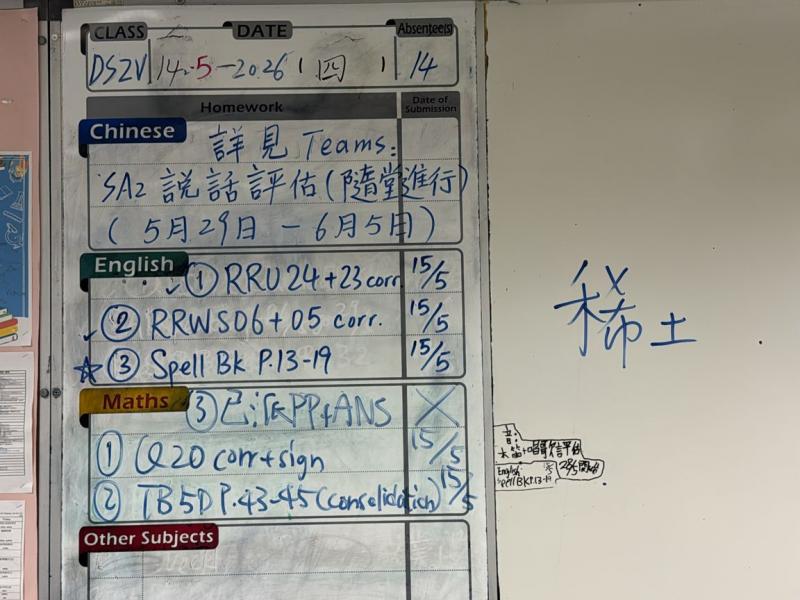 CLASS DATE Absentee(s)
DS2V 14.5-2026 (四) 14
Homework Date of Submission
Chinese 詳見 Teams:
SA2 説話評估(隨堂進行)
(5月29日 - 6月5日)
English ✓ ① RRU 24+23 corr. 15/5
✓ ② RRWS06+05 corr. 15/5
☆ ③ Spell Bk P.13-19 15/5
Maths ③ 已派PP+ANS X
① Q20 corr+sign 15/5
② TB5D P.43-45 (consolidation) 15/5
Other Subjects
稀土
English
Spell BK P.13-19